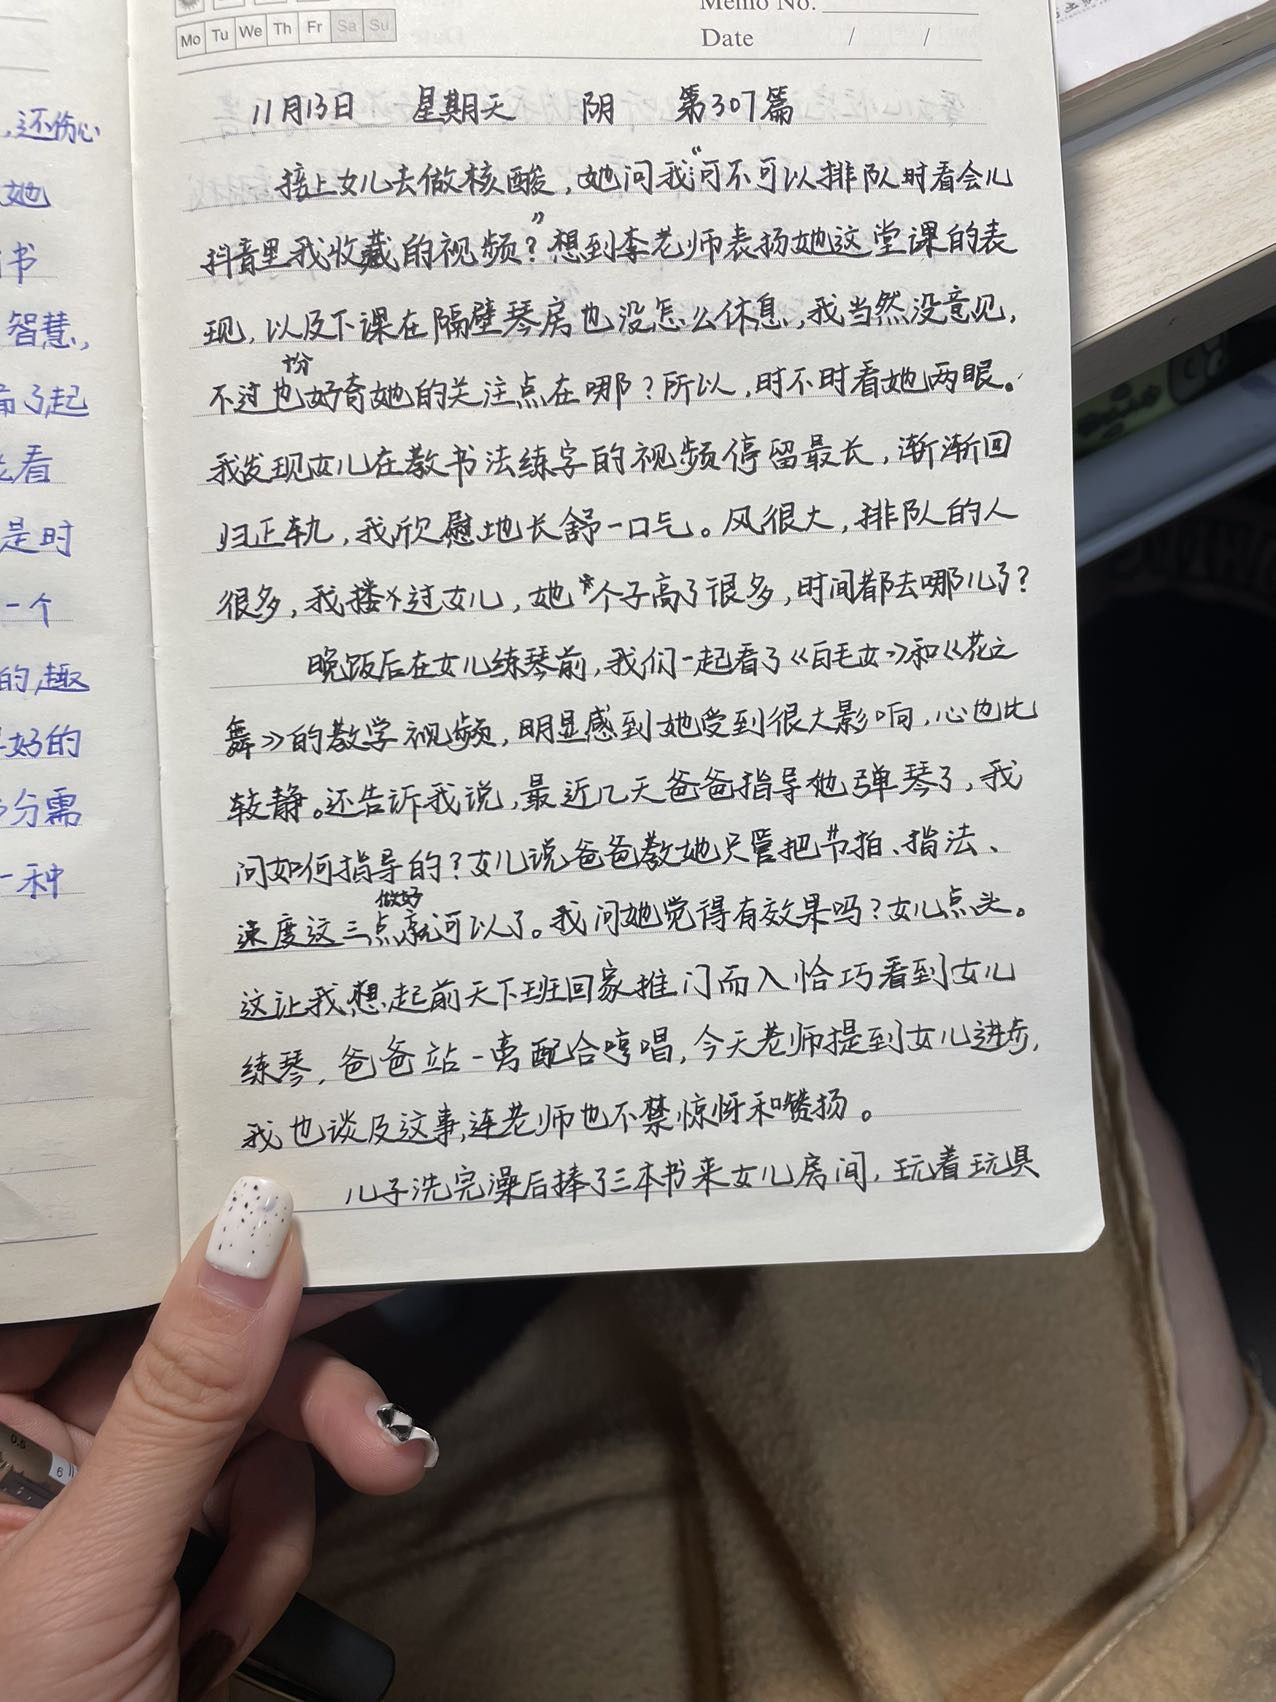 ,还伤心
她
书
智慧,
了起
看
是时
一个
的,趣
好的
分需
一种
Mo Tu We Th Fr Sa Su
Memo No.
Date / /
11月13日 星期天 阴 第307篇
接上女儿去做核酸,她问我“可不可以排队时看会儿
抖音里我收藏的视频?”想到李老师表扬她这堂课的表
现,以及下课在隔壁琴房也没怎么休息,我当然没意见,
不过也十分好奇她的关注点在哪?所以,时不时看她两眼。
我发现女儿在教书法练字的视频停留最长,渐渐回
归正轨,我欣慰地长舒一口气。风很大,排队的人
很多,我搂过女儿,她个子高了很多,时间都去哪儿了?
晚饭后在女儿练琴前,我们一起看了《白毛女》和《花之
舞》的教学视频,明显感到她受到很大影响,心也比
较静。还告诉我说,最近几天爸爸指导她弹琴了,我
问如何指导的?女儿说爸爸教她只管把节拍、指法、
速度这三点做好就可以了。我问她觉得有效果吗?女儿点头。
这让我想起前天下班回家推门而入恰巧看到女儿
练琴,爸爸站一旁配合哼唱,今天老师提到女儿进步,
我也谈及这事,连老师也不禁惊讶和赞扬。
儿子洗完澡后捧了三本书来女儿房间,玩着玩具
0.5
6